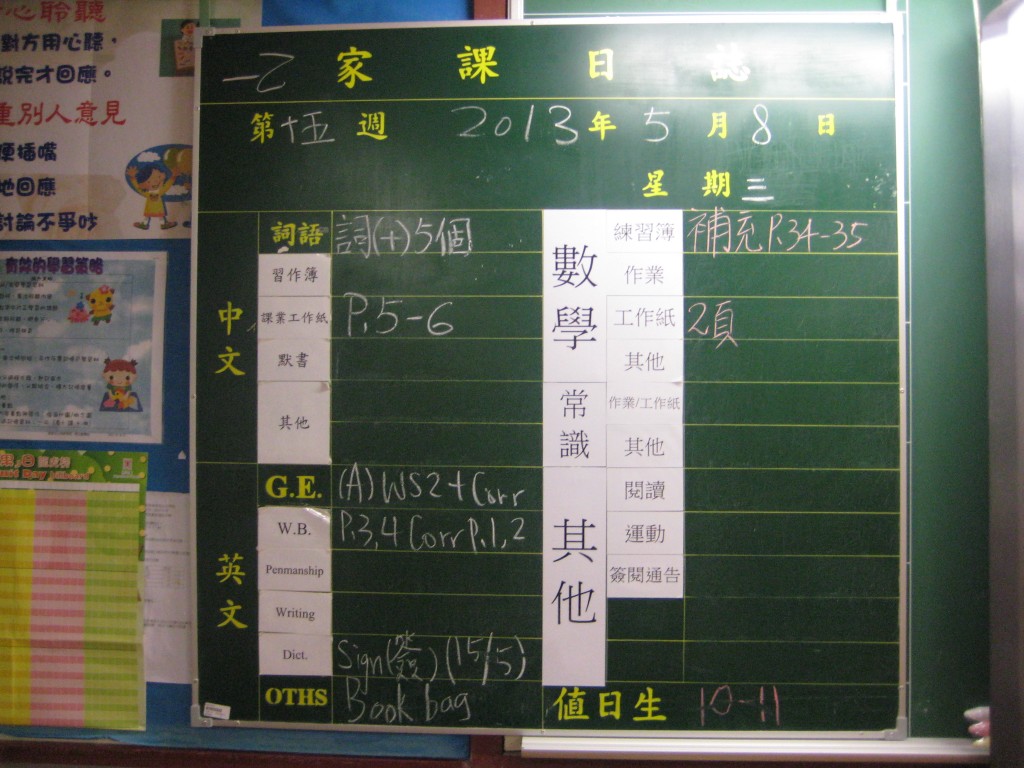 心聆聽
對方用心聽，
說完才回應。
重別人意見
便插嘴
地回應
討論不爭吵
有效的學習策略
一乙 家課日誌
第十五週 2013年5月8日
星期三
中文
詞語 詞(十)5個
習作簿
課業工作紙 P.5-6
默書
其他
英文
G.E. (A) WS2+Corr
W.B. P.3,4 Corr P.1,2
Penmanship
Writing
Dict. Sign(簽)(15/5)
OTHS Book bag
數學
練習簿 補充 P.34-35
作業
工作紙 2頁
其他
常識
作業/工作紙
其他
其他
閱讀
運動
簽閱通告
值日生 10-11